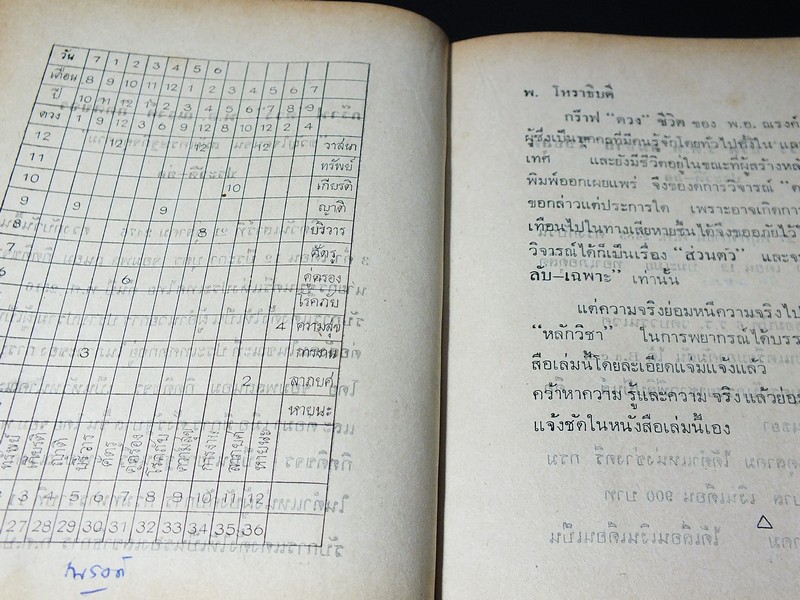 วัน 7 1 2 3 4 5 6
เดือน 8 9 10 11 12 1 2 3 4 5 6 7
ปี 10 11 12 1 2 3 4 5 6 7 8 9
ดวง 1 9 12 3 6 9 12 8 10 12 2 4
12 12 12 12 วาสนา
11 ทรัพย์
10 10 เกียรติ
9 9 9 ญาติ
8 8 บริวาร
7 ศัตรู
6 6 คู่ครอง
โรคภัย
4 ความสุข
3 การงาน
2 ลาภยศ
หายนะ
ทรัพย์ เกียรติ ญาติ บริวาร ศัตรู คู่ครอง โรคภัย ความสุข การงาน ลาภยศ หายนะ
3 4 5 6 7 8 9 10 11 12
27 28 29 30 31 32 33 34 35 36
ณรงค์
พ. โหราธิบดี
กร๊าฟ "ดวง" ชีวิต ของ พ.อ. ณรงค์
ผู้ซึ่งเป็นบุคคลที่มีคนรู้จักโดยทั่วไปทั้งใน
เทศ และยังมีชีวิตอยู่ในขณะที่ผู้สร้าง
พิมพ์ออกเผยแพร่ จึงของดการวิจารณ์
ขอกล่าวแต่ประการใด เพราะอาจเกิดการ
เทือนไปในทางเสียหายขึ้นได้จึงขออภัยไว้
วิจารณ์ได้ก็เป็นเรื่อง "ส่วนตัว" และ
ลับ-เฉพาะ" เท่านั้น
แต่ความจริงย่อมหนีความจริงไป
"หลักวิชา" ในการพยากรณ์ได้บรร
สือเล่มนี้โดยละเอียดแจ่มแจ้งแล้ว
คร้าหาความรู้และความจริงแล้วย่อม
แจ้งชัดในหนังสือเล่มนี้เอง